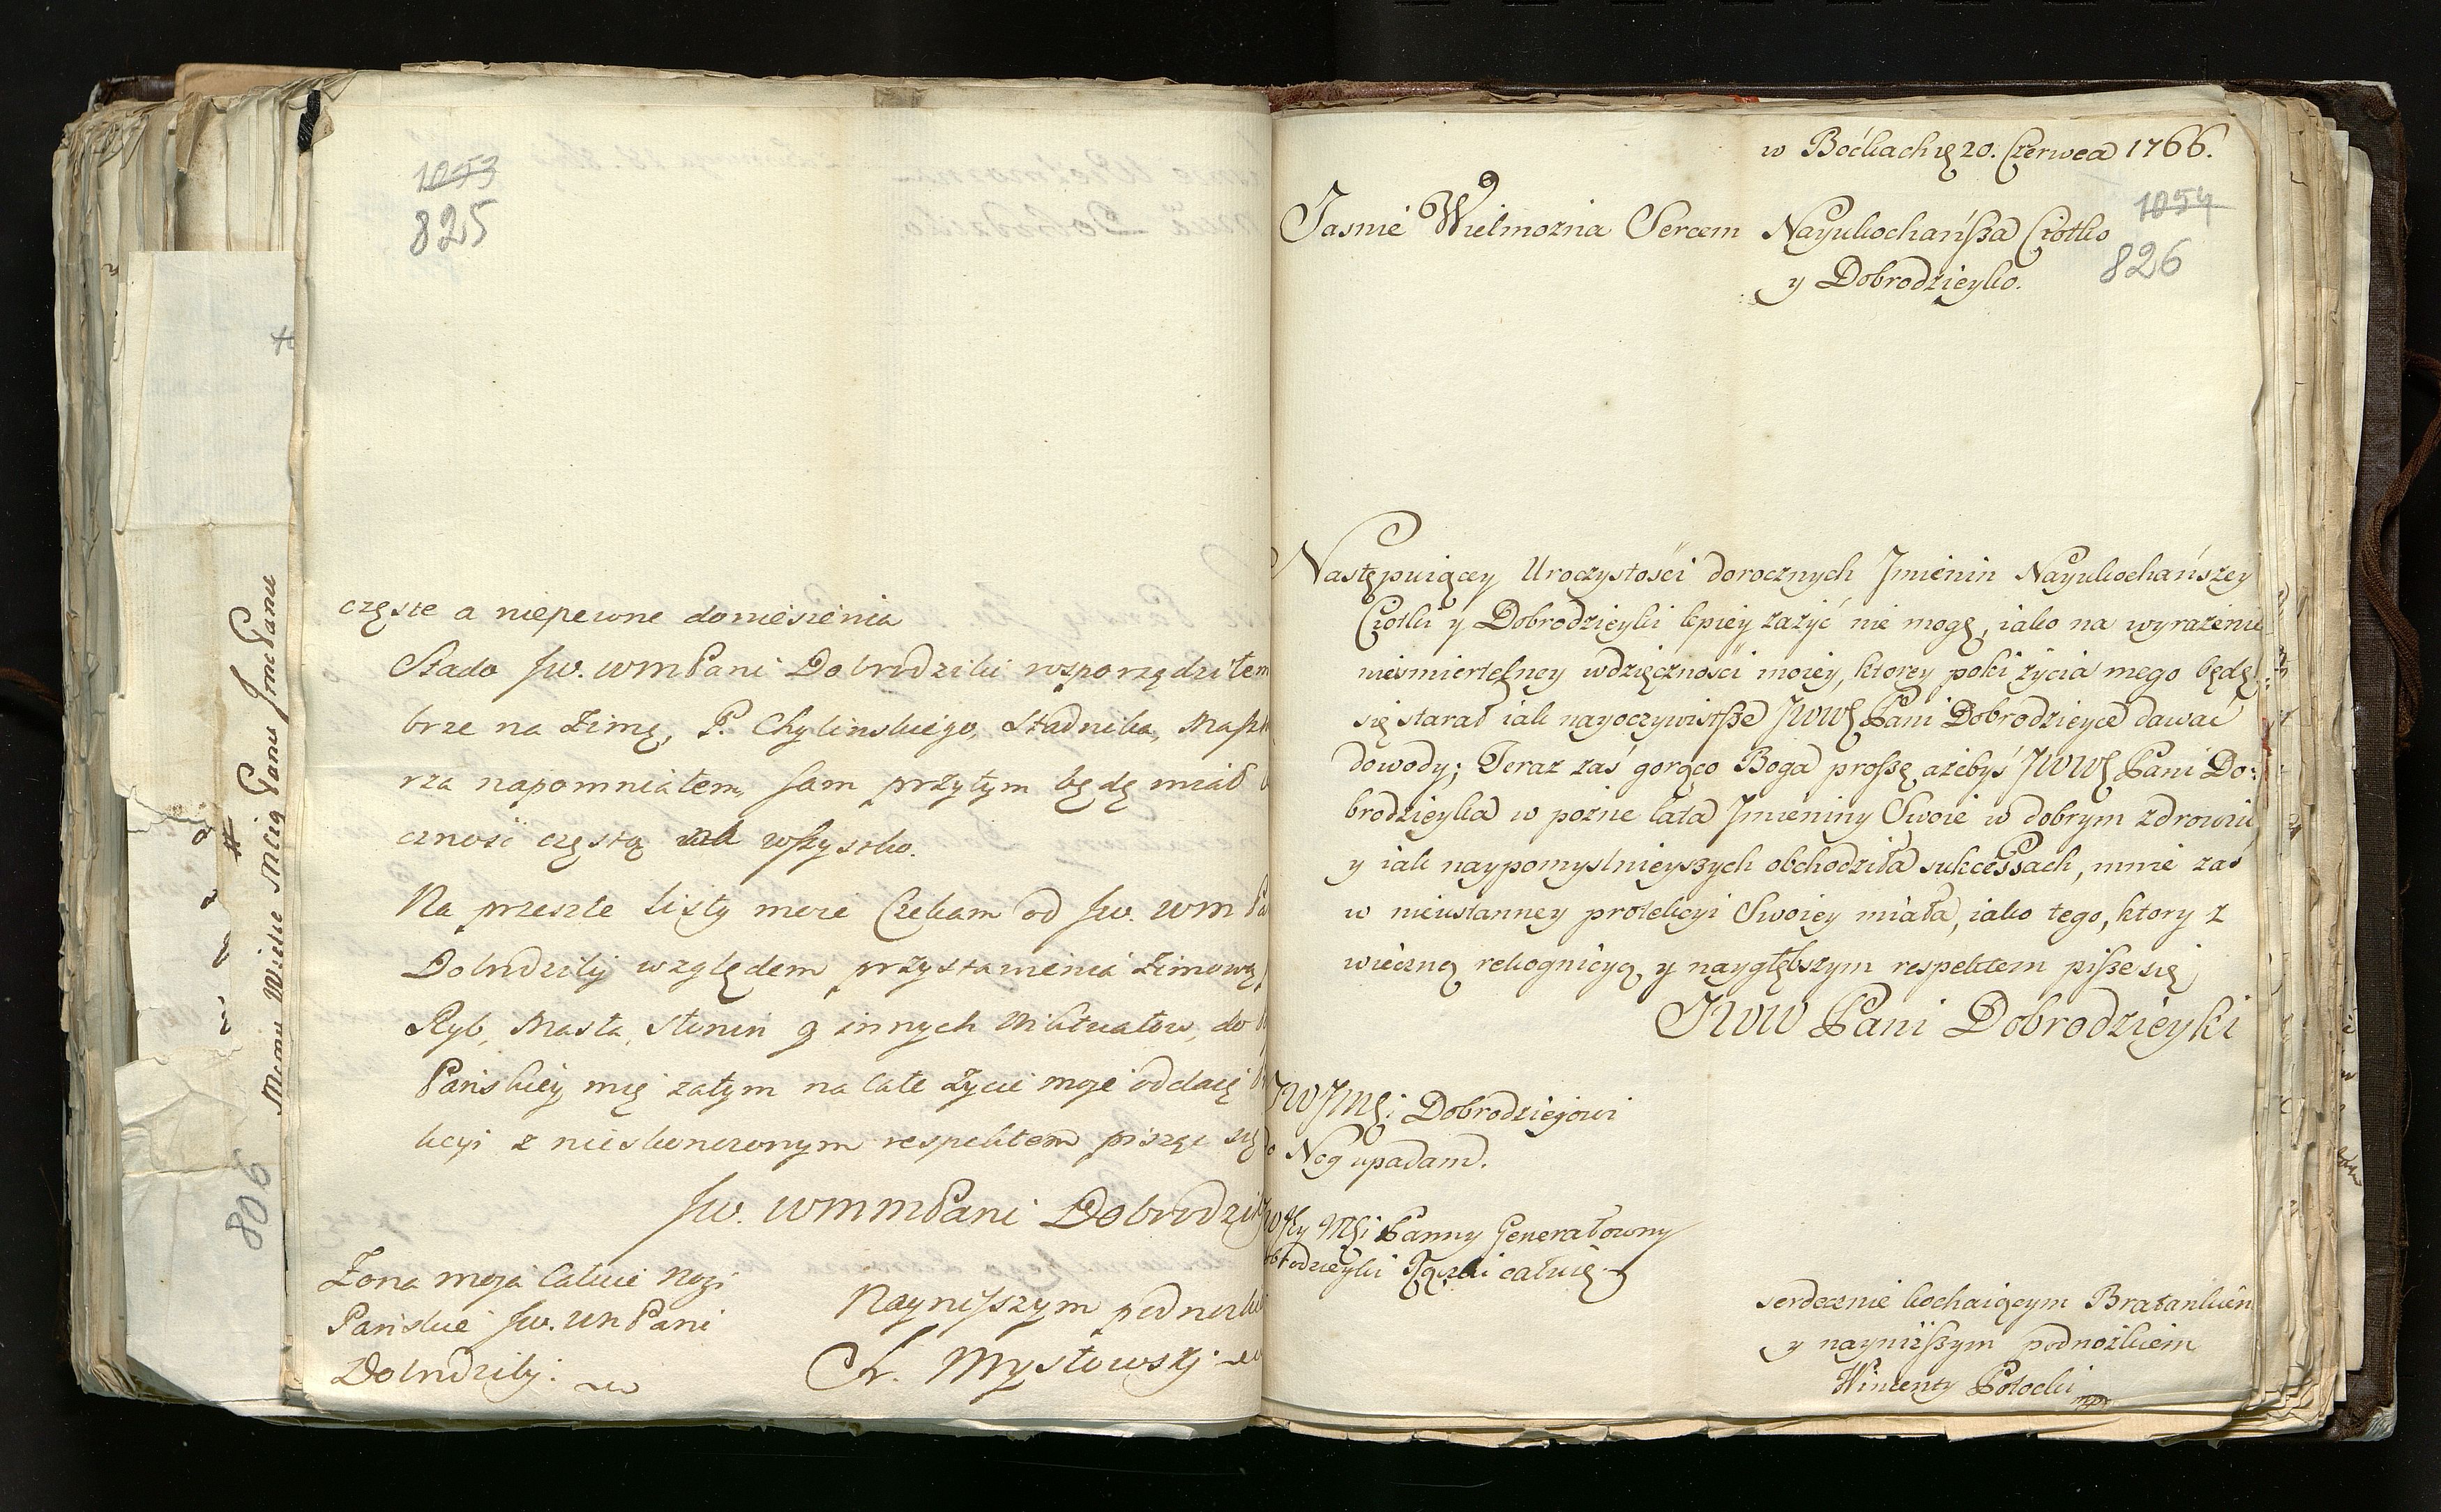 1053
825
częste a niepewne doniesienia
Stado Jw. WmPani Dobrodziki rosporządziłem
brze na Zimę, P. Chylinskiego, Stadnika, Masz
rza napomniałem, sam przytym będę miał
czność częstą na wszystko.
Na przeszłe Listy moie Czekam od Jw. Wm Pa
Dobrodziki względem przystawienia Zimowe
Ryb, Masła, Słonin y innych Wiktuałow, do
Pańskiey mię zatym na Całe Życie moje oddaię
kcyi z nieskonczonym respektem pisząc się
Jw. WmmPani Dobrodzi
Zona moja Całuie Nogi
Pańskie Jw. WmPani
Dobrodziki.
Nayniszszym podnożki
Ch. Mysłowski
Memu Wielce Mcią Panu JmcPanu
806
w Boćkach 20. Czerwca 1766.
1054
826
Jasnie Wielmożna Sercem Nayukochańsza Ciotko
y Dobrodzieyko.
Następuiącey Uroczystości dorocznych Jmienin Nayukochańszey
Ciotki y Dobrodzieyki lepiey zażyć nie mogę, iako na wyrażenie
nieśmiertelney wdzięczności moiey, ktorey poki życia mego będę
się starał iak nayoczywistsze JWW Pani Dobrodzieyce dawać
dowody; Teraz zaś gorąco Boga proszę, ażebyś JWW Pani Do:
brodzieyka w poźne lata Jmieniny Swoie w dobrym zdrowiu
y iak naypomyslnieyszych obchodziła sukcessach, mnie zaś
w nieustanney protekcyi Swoiey miała, iako tego, ktory z
wieczną rekognicyą y naygłębszym respektem pisze się
JWW Pani Dobrodzieyki
JWJM Dobrodziejowi
do Nog upadam.
Panny Generałowny
obrodzieyki Rączki całuię
serdecznie kochaiącym Bratankiem
y nayniższym podnożkiem
Wincenty Potocki mpr